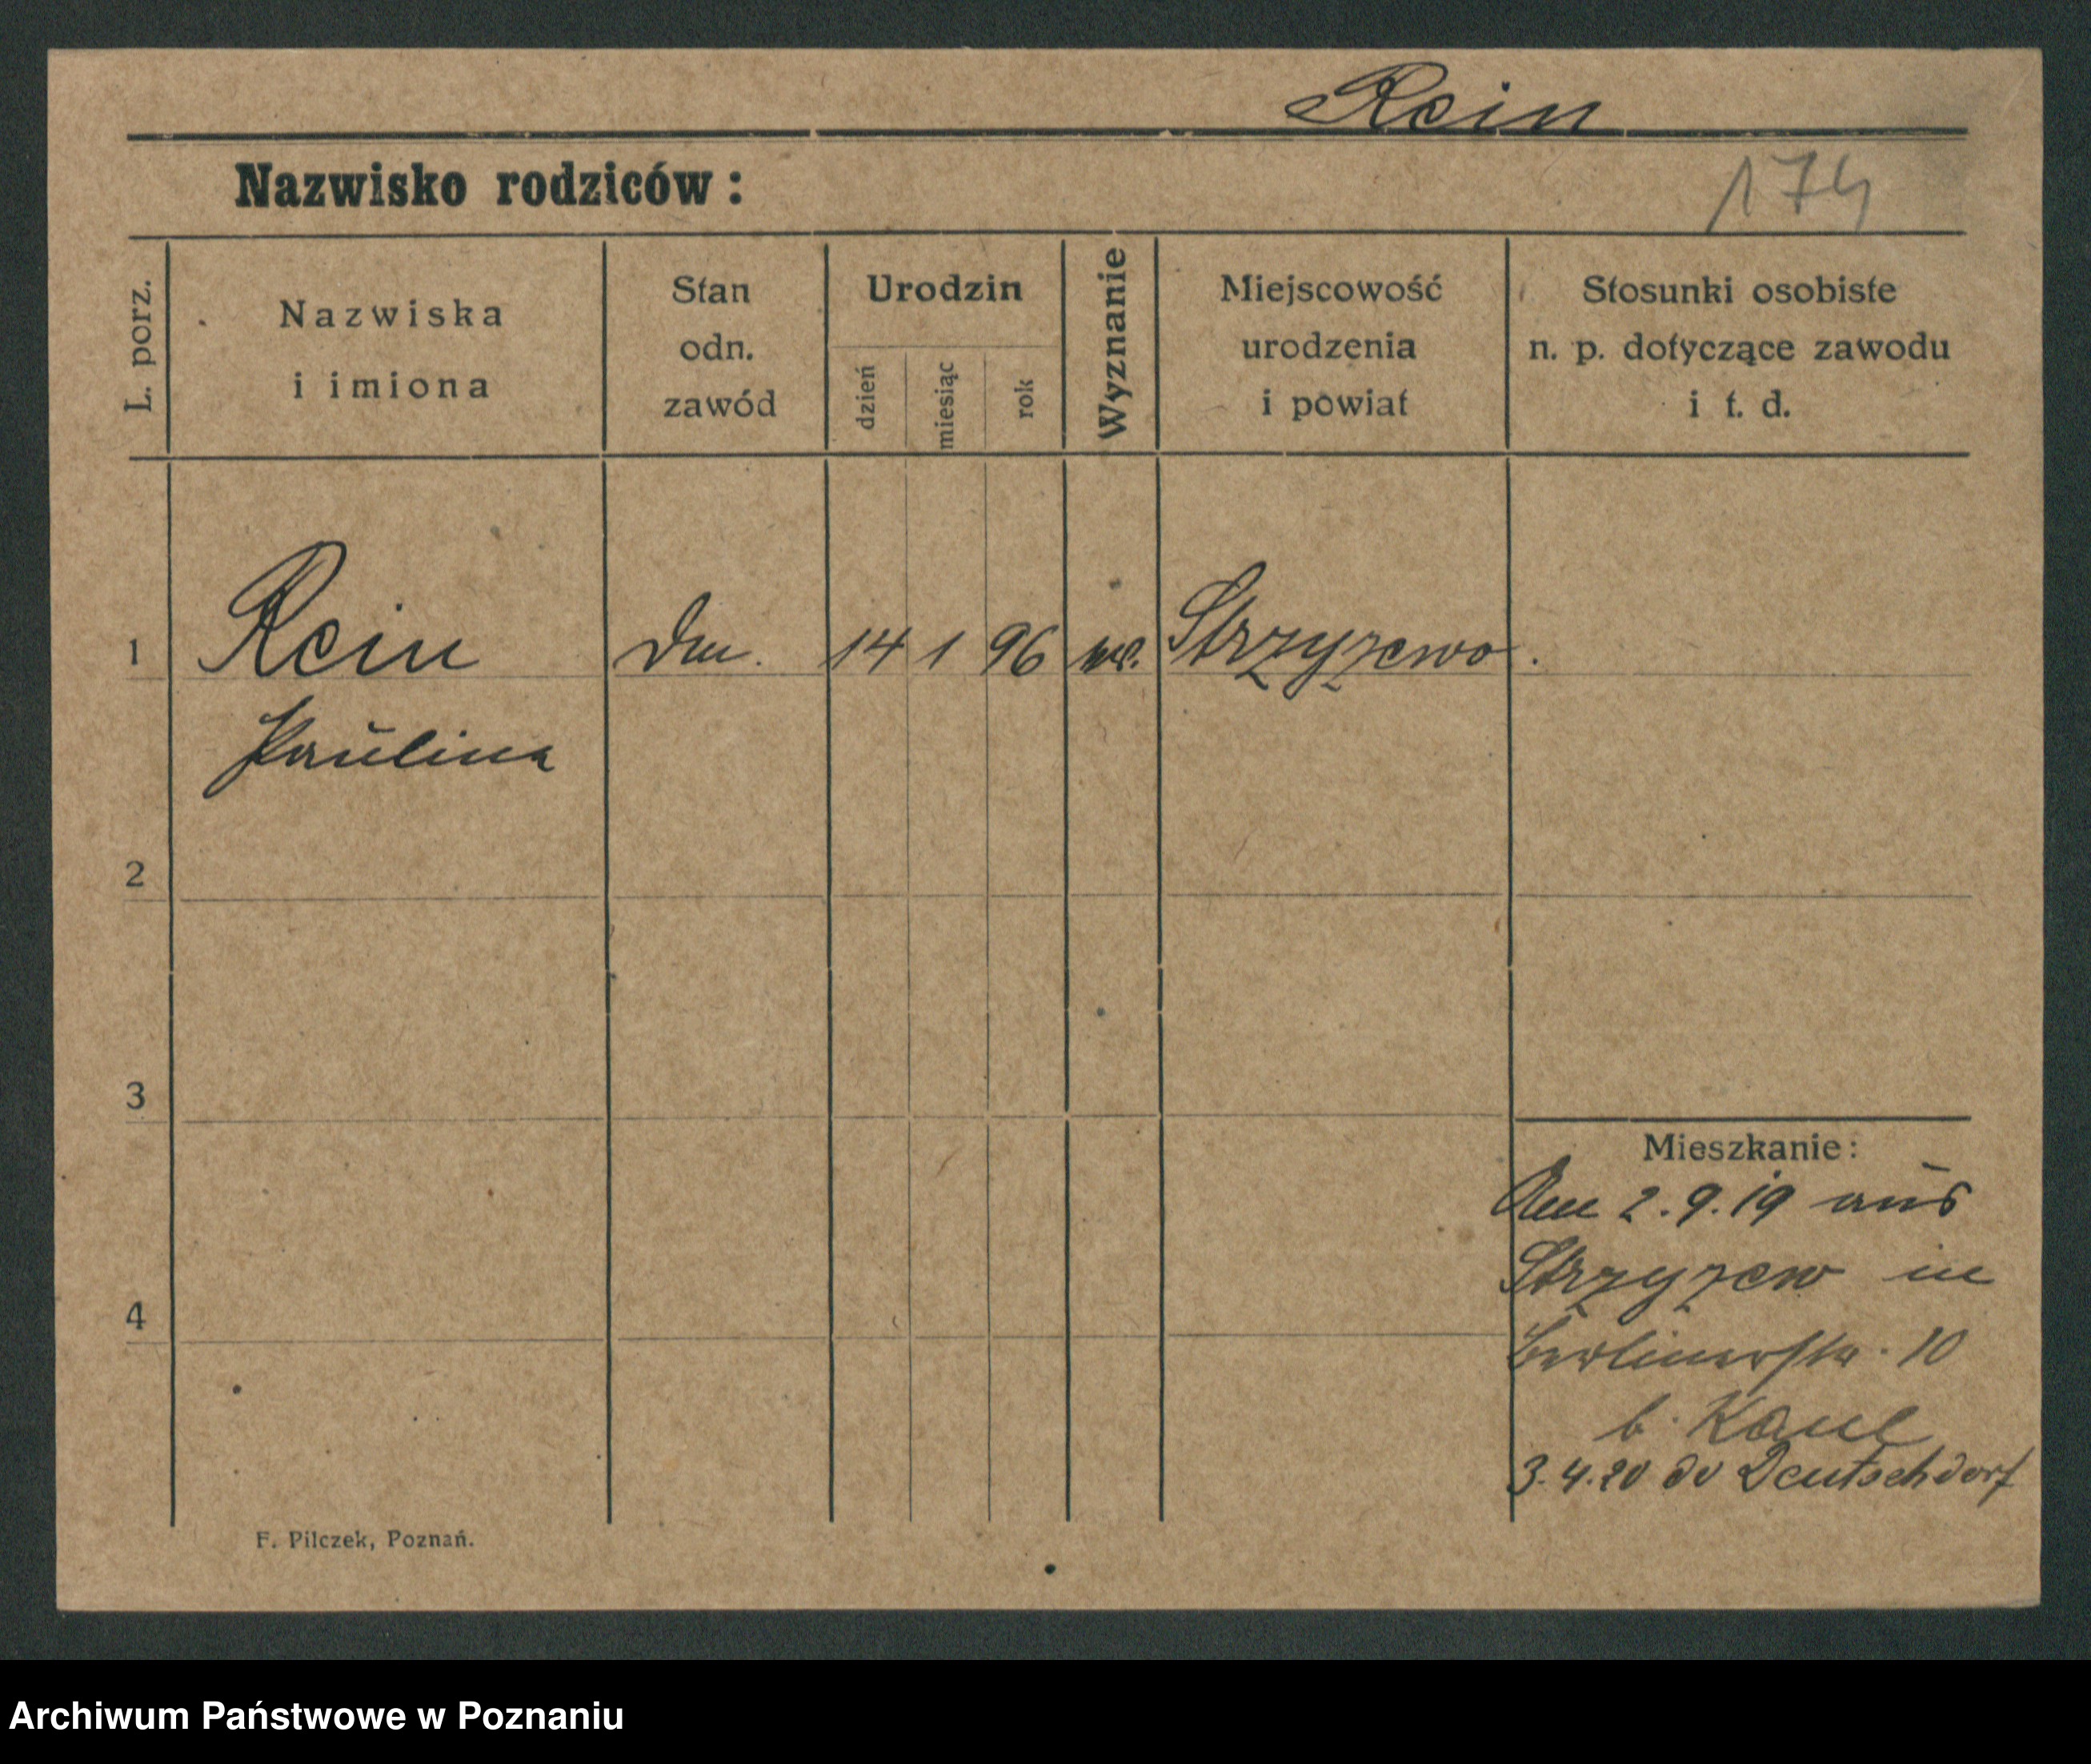 Rein
Nazwisko rodziców:
174
L. porz.
Nazwiska
i imiona
Stan
odn.
zawód
Urodzin
dzień
miesiąc
rok
Wyznanie
Miejscowość
urodzenia
i powiat
Stosunki osobiste
n. p. dotyczące zawodu
i t. d.
1 Rein 14 1 96 Strzyzewo.
Paulina
2
3
4
Mieszkanie:
Am 2.9.19 aus
Strzyzew in
Berlinerstr. 10
b. Kaul
3.4.20 do Deutschdorf
F. Pilczek, Poznań.
Archiwum Państwowe w Poznaniu